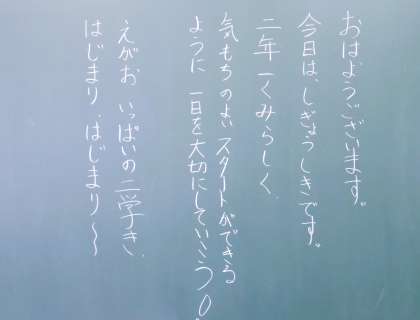 おはようございます。
今日は、しぎょうしきです。
二年一くみらしく、
気もちのよいスタートができる
ように一日を大切にしていこう。
えがおいっぱいの二学き、
はじまり、はじまり〜